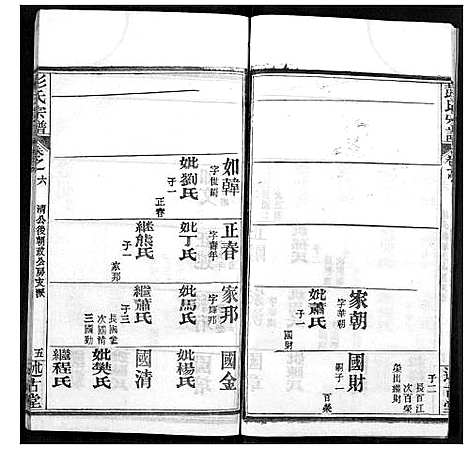 家朝
字華朝
妣蕭氏
子一
國財
國財
嗣子一
百榮
子二
長百江
次百榮
榮出繼財
如韓
字世嗣
妣劉氏
子一
正春
正春
字青年
妣丁氏
繼熊氏
子一
家邦
家邦
妣馬氏
繼蕭氏
子三
長國金
次國清
三國勤
國金
妣楊氏
國清
妣樊氏
繼程氏
彭氏宗譜
卷之一六
清公後朝政公房支派
五
述古堂